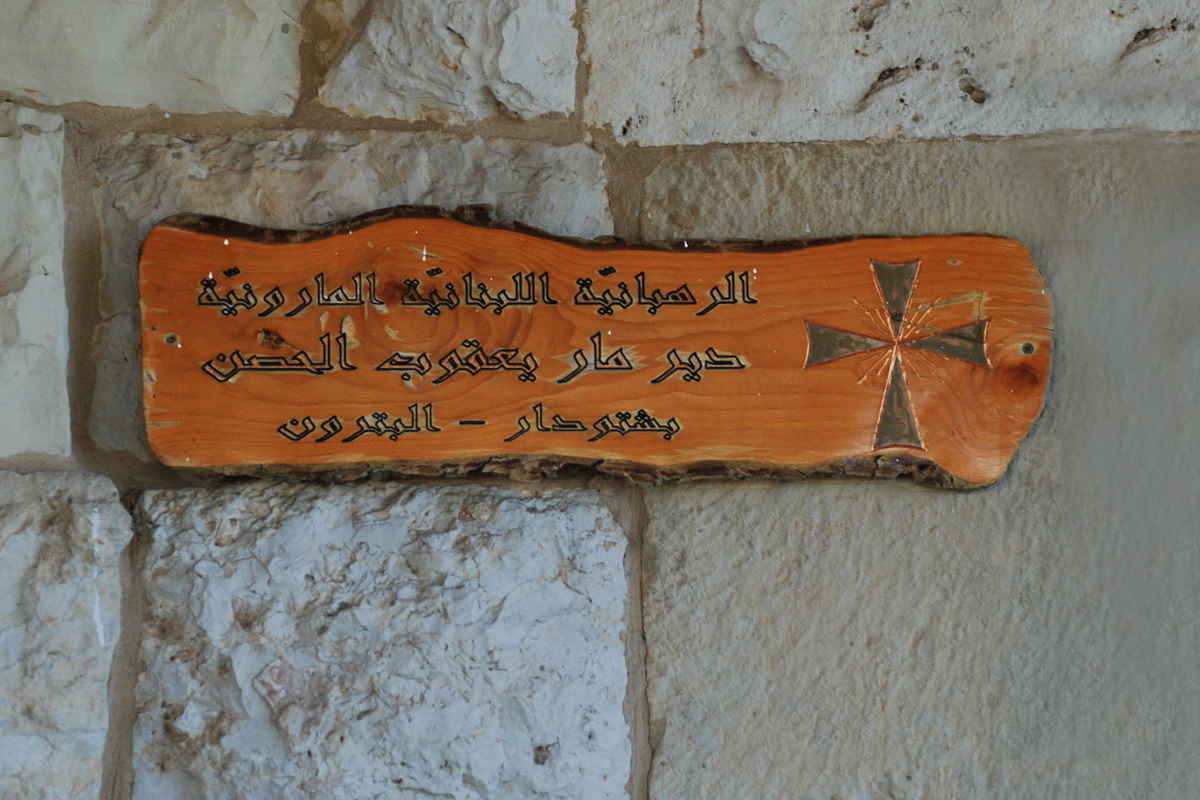 الرهبانيّة اللبنانيّة المارونيّة
دير مار يعقوب الحصن
بشتودار – البترون